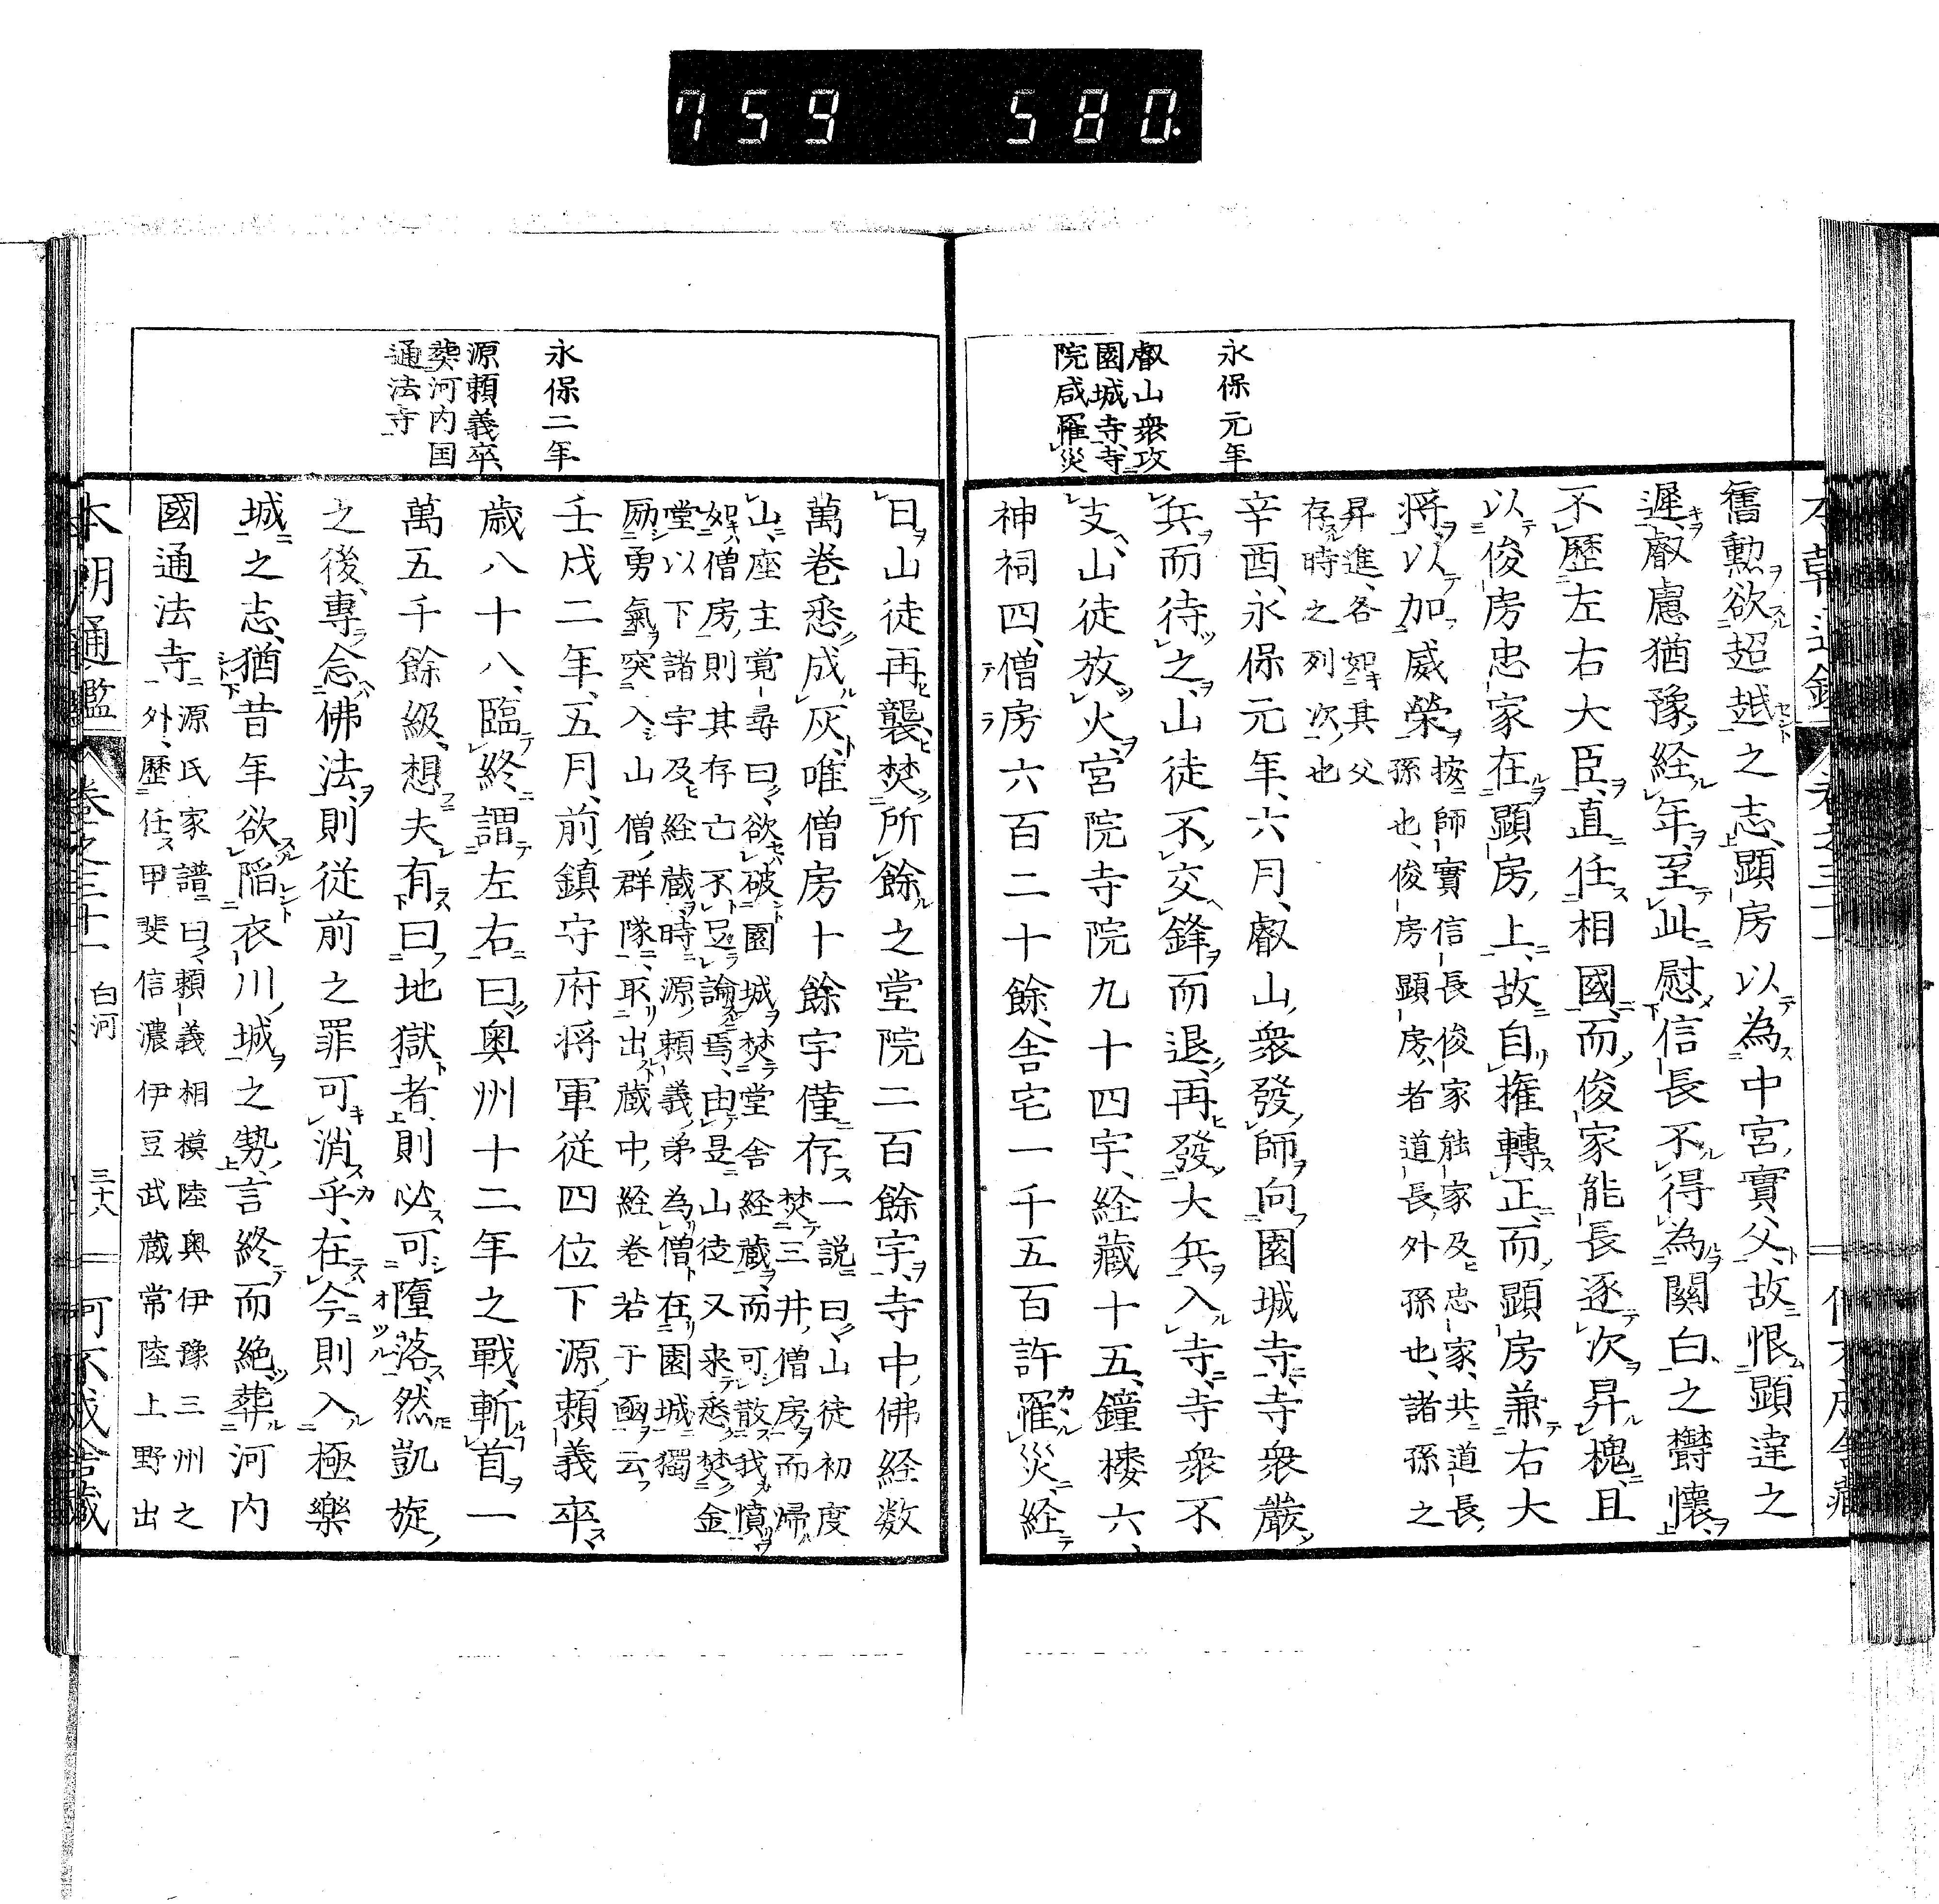 759 580.
永保元年
叡山衆攻
園城寺、寺
院咸罹災
舊勲欲超越之志顕房以為中宮實父故恨顕達之
遅叡慮猶豫経年至此慰信長不得為關白之欝懐
不歴左右大臣直任相國而俊家能長逐次昇槐且
以俊房忠家在顕房上故自権轉正而顕房兼右大
将以加威榮
按師實信長俊家能家及忠家共道長
孫也俊房顕房者道長外孫也諸孫之
昇進各如其父
存時之列次也
辛酉永保元年六月叡山衆發師向園城寺寺衆嚴
兵而待之山徒不交鋒而退再發大兵入寺寺衆不
支山徒放火宮院寺院九十四宇経藏十五鐘楼六
神祠四僧房六百二十餘舎宅一千五百許罹災経
日山徒再襲焚所餘之堂院二百餘宇寺中佛経数
萬巻悉成灰唯僧房十餘宇僅存
一説曰山徒初度
焚三井僧房而帰
山座主覚尋曰欲破園城焚堂舎経蔵而可散我憤
如僧房則其存亡不足論焉由是山徒又来悉焚金
堂以下諸宇及経蔵時源頼義弟為僧在園城獨
励勇氣突入山僧群隊取出蔵中経巻若干凾云
永保二年
源頼義卒
葬河内国
通法寺
壬戌二年五月前鎮守府将軍従四位下源頼義卒
歳八十八臨終謂左右曰奥州十二年之戰斬首一
萬五千餘級想夫有曰地獄者則必可墮落然凱旋
之後專念佛法則従前之罪可消乎在今則入極樂
城之志猶昔年欲陥衣川城之勢言終而絶葬河内
國通法寺
源氏家譜曰頼義相模陸奥伊豫三州之
外歴任甲斐信濃伊豆武蔵常陸上野出
本朝通鑑 巻之三十一 白河 三十八